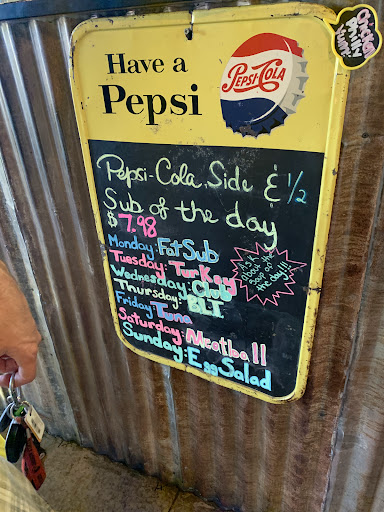 Have a
Pepsi
PEPSI-COLA
Pepsi-Cola, Side & 1/2
Sub of the day
$7.98
Monday: Fat Sub
Tuesday: Turkey
Wednesday: Club
Thursday: BLT
Friday Tuna
Saturday: Meatball
Sunday: Egg Salad
Ask
about the
Soup of
the day!!!